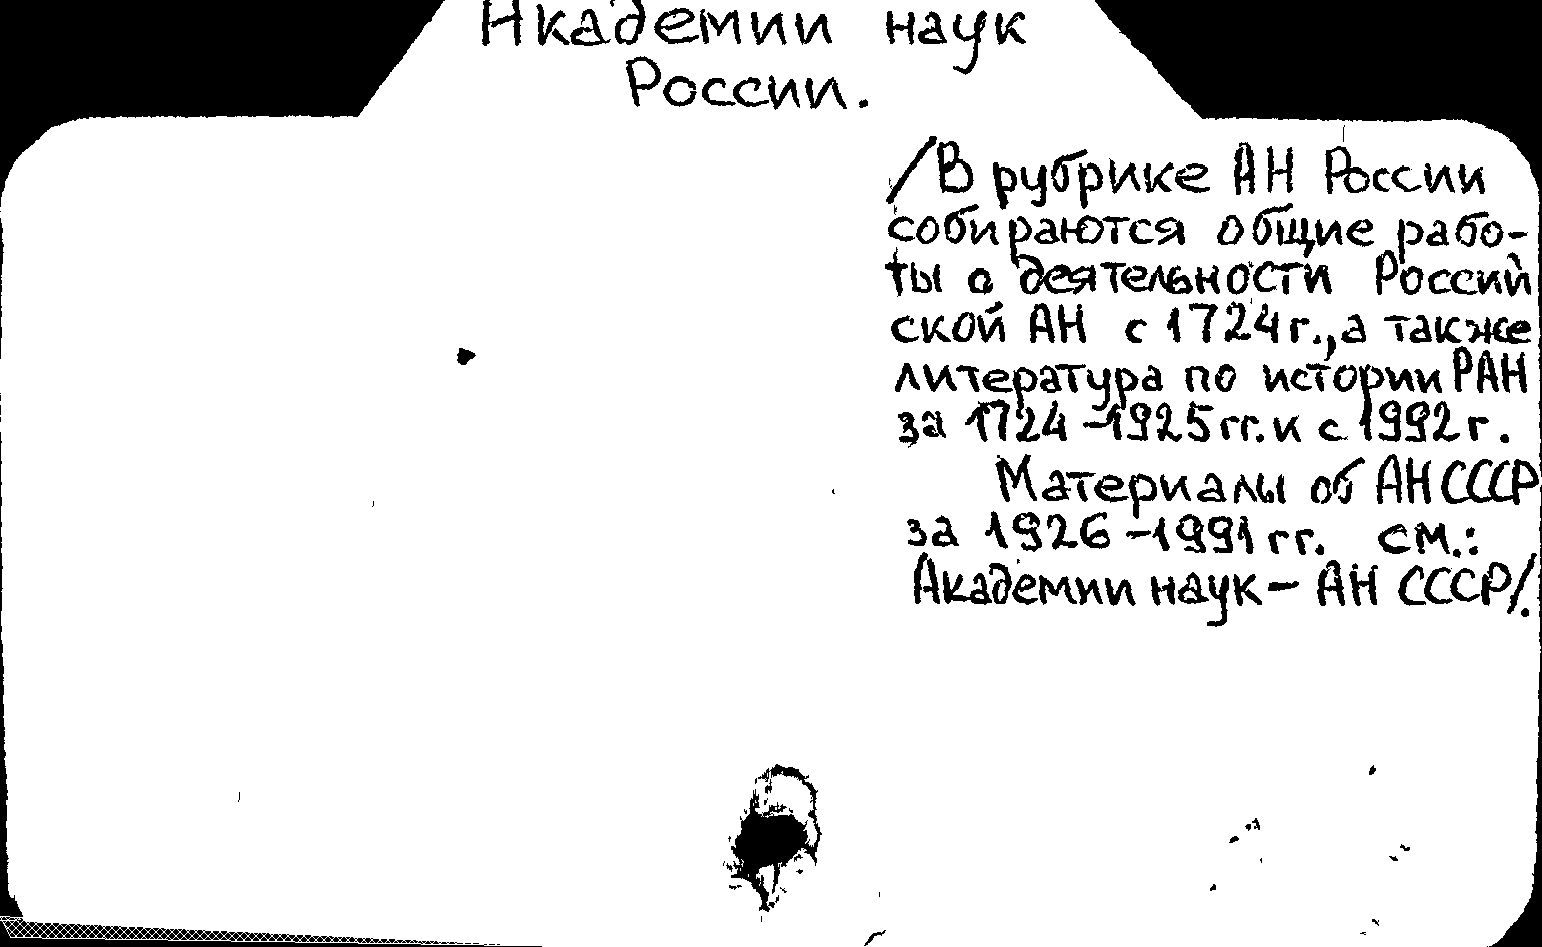 Академии наук
России.
/В рубрике АН России
собираются общие рабо-
ты о деятельности Россий
ской АН с 1724г., а также
литература по истории РАН
за 1724-1925гг. и с 1992г.
Материалы об АН СССР
за 1926-1991гг. см.:
Академии наук - АН СССР/.